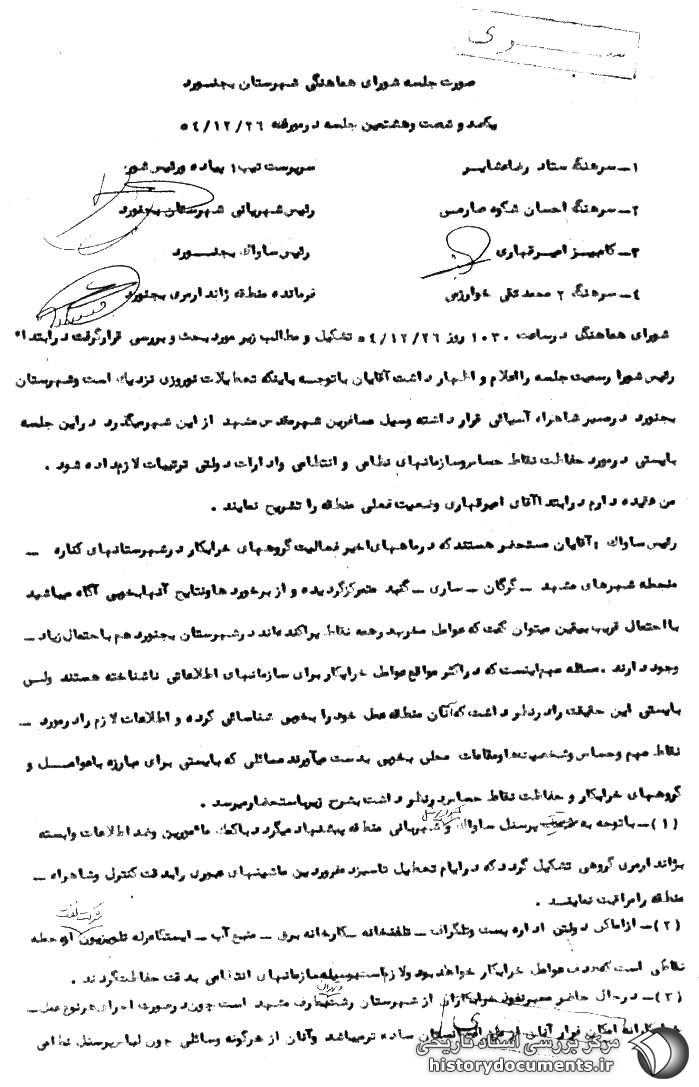 سری
صورت جلسه شورای هماهنگی شهرستان بجنورد
یکصد و شصت وهشتمین جلسه درمورخه ۵۴/۱۲/۲۶
۱ـ سرهنگ ستاد رضاعشایر سرپرست تیپ۱ پیاده ورئیس شورا
۲ـ سرهنگ احسان شکوه صارمی رئیس شهربانی شهرستان بجنورد
۳ـ کامبیز امیرقهاری رئیس ساواک بجنورد
۴ـ سرهنگ ۲ محمدتقی خوارزمی فرمانده منطقه ژاندارمری بجنورد
شورای هماهنگی درساعت ۱۰۳۰ روز ۵۴/۱۲/۲۶ تشکیل و مطالب زیر مورد بحث و بررسی قرارگرفت درابتداء
رئیس شورا رسمیت جلسه رااعلام و اظهار داشت آقایان باتوجه باینکه تعطیلات نوروزی نزدیک است وشهرستان
بجنورد درمسیر شاهراه آسیائی قرار داشته وسیل مسافرین شهرمقدس مشهد از این شهرمیگذرد دراین جلسه
بایستی درمورد حفاظت نقاط حساس وسازمانهای نظامی و انتظامی وادارات دولتی ترتیبات لازم داده شود .
من عقیده دارم درابتداآقای امیرقهاری وضعیت فعلی منطقه را تشریح نمایند .
رئیس ساواک : آقایان مستحضر هستند که درماههای اخیر فعالیت گروههای خرابکار درشهرستانهای کناره ـ
منجمله شهرهای مشهد ـ گرگان ـ ساری ـ گنبد متمرکزگردیده و از برخورد هاونتایج آنهابخوبی آگاه میباشید
بااحتمال قریب بیقین میتوان گفت که عوامل مخرب درهمه نقاط پراکنده‌اند درشهرستان بجنورد هم باحتمال زیاد ـ
وجود دارند . مسئله مهم اینست که دراکثر مواقع عوامل خرابکار برای سازمانهای اطلاعاتی ناشناخته هستند ولی
بایستی این حقیقت رادرنظر داشت که آنان منطقه عمل خود را بخوبی شناسائی کرده و اطلاعات لازم رادرمورد ـ
نقاط مهم وحساس وشخصیت‌هاومقامات محلی بخوبی بدست میآورند مسائلی که بایستی برای مبارزه باعوامل و
گروههای خرابکار و حفاظت نقاط حساس درنظر داشت بشرح زیرباستحضارمیرسد .
(۱)ـ باتوجه به کمبود پرسنل ساواک و شهربانی منطقه پیشنهاد میگردد باکمک مامورین وضد اطلاعات وابسته
بژاندارمری گروهی تشکیل گردد که درایام تعطیل تاسیزده فروردین ماشینهای عبوری رابدقت کنترل وشاهراه ـ
منطقه رامراقبت نمایند .
شرکت نفت
(۲)ـ ازاماکن دولتی اداره پست وتلگراف ـ تلفنخانه ـ کارخانه برق ـ منبع آب ـ ایستگاه رله تلویزیون ازجمله
نقاطی است که هدف عوامل خرابکار خواهد بود ولازم است بوسیله سازمانهای انتظامی بدقت حفاظت گردند .
وتهران
(۳)ـ درحال حاضر مسیرنفوذ خرابکاران از شهرستان رشت بطرف مشهد است چون درصورت اجرای هرنوع عمل ـ
خرابکارانه امکان فرار آنان از طریق این استان ساده ترمیباشد وآنان از هرگونه وسائلی چون لباس پرسنل نظامی
سری
مرکز بررسی اسناد تاریخی
historydocuments.ir